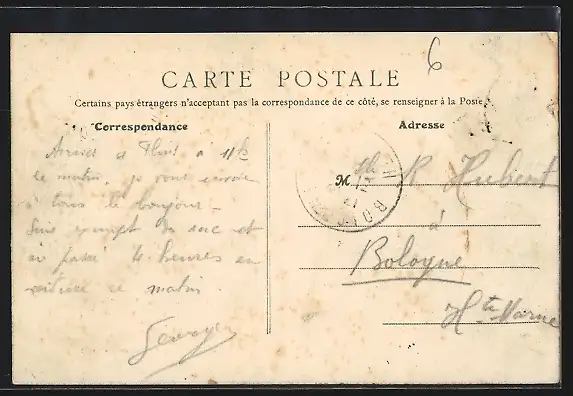 6
CARTE POSTALE
Certains pays étrangers n'acceptant pas la correspondance de ce côté, se renseigner à la Poste
Correspondance
Adresse
Arrivés à 11h
le matin, je vous envoie
à tous le bonjour -
Suis exempt de sac et
ai passé 4 heures en
voiture ce matin.
Georges
M R Hubert
à
Bologne
Hte Marne